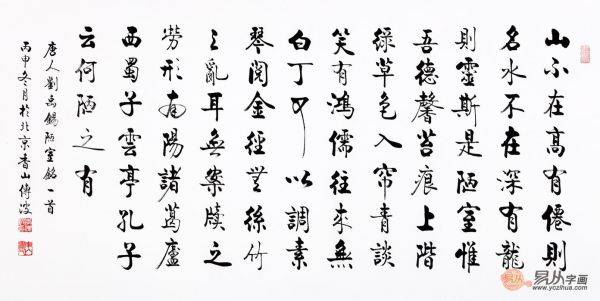 山不在高有僊則
名水不在深有龍
則靈斯是陋室惟
吾德馨苔痕上階
綠草色入帘青談
笑有鴻儒往來無
白丁可以調素
琴閱金經無絲竹
之亂耳無案牘之
勞形南陽諸葛廬
西蜀子雲亭孔子
云何陋之有
唐人劉禹錫陋室銘一首
丙申冬月於北京香山傅波
易从字画
www.yczihua.com